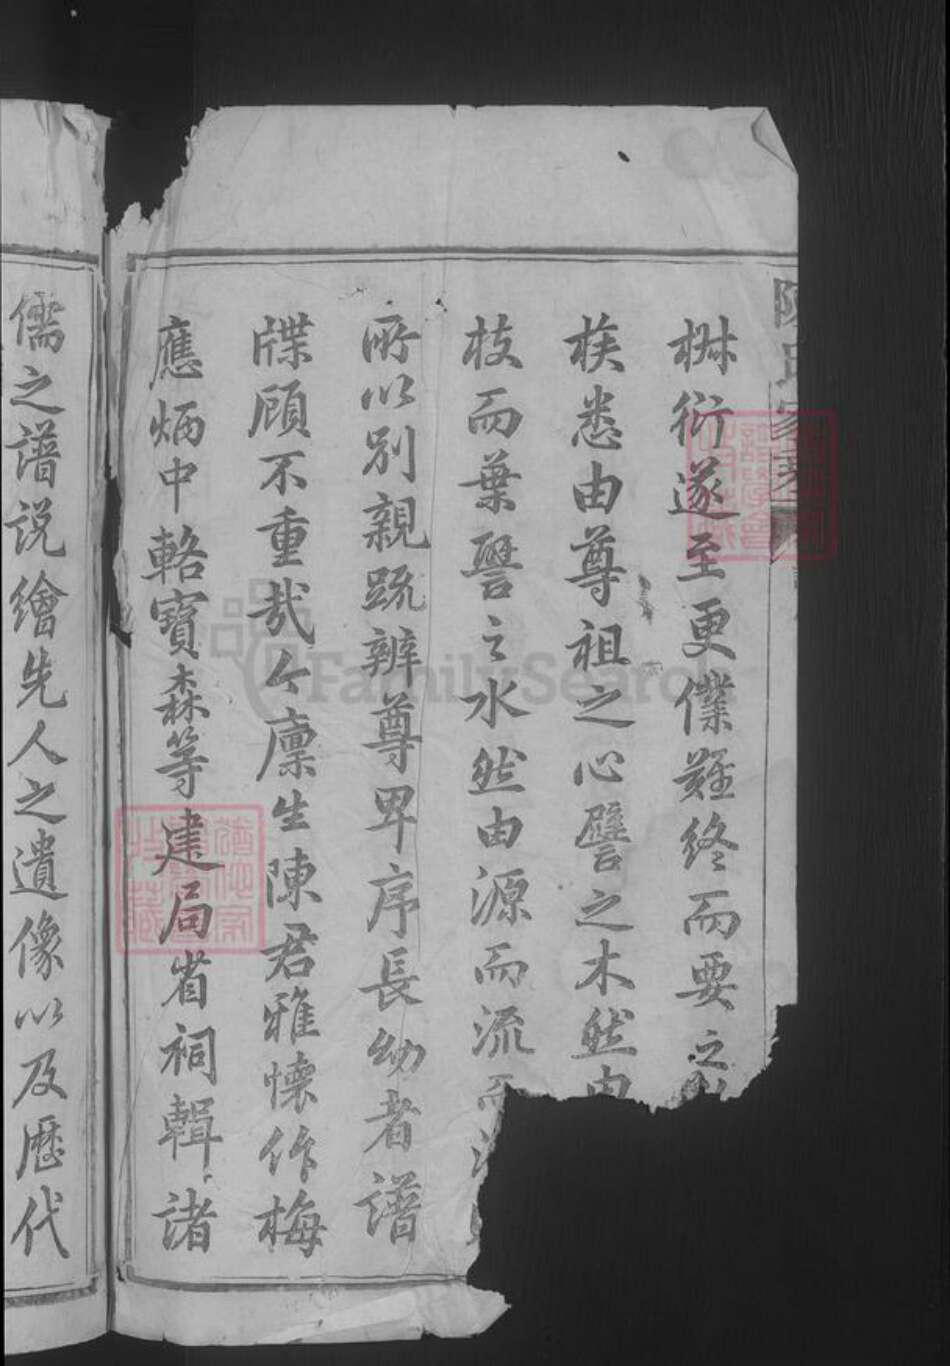 陳氏家
椒衍遂至更僕難終而要之
族悉由尊祖之心譬之木然由
枝而葉譬之水然由源而流而
所以别親疏辨尊卑序長幼者譜
牒顧不重哉今廪生陳君雅懷作梅
應炳中輅寳森等建局省祠輯諸
儒之譜説繪先人之遺像以及歴代
FamilySearch